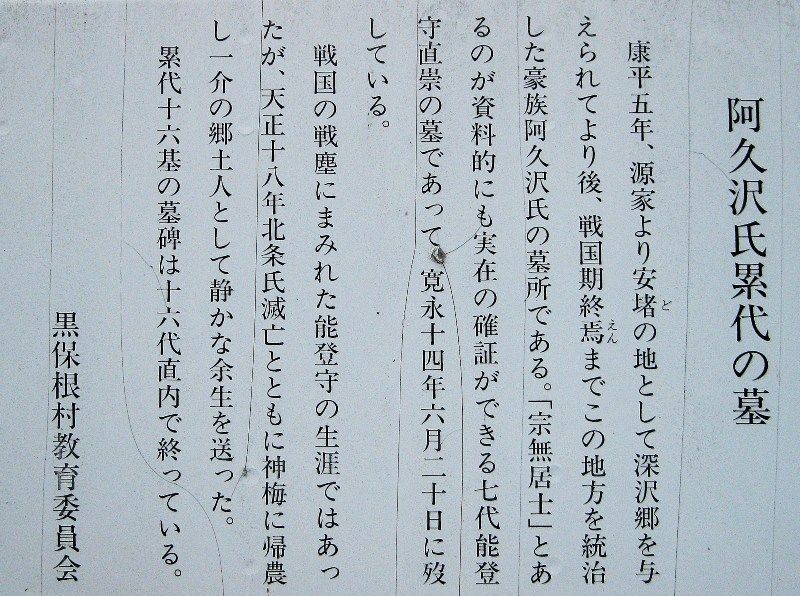 阿久沢氏累代の墓
康平五年、源家より安堵の地として深沢郷を与
えられてより後、戦国期終焉までこの地方を統治
した豪族阿久沢氏の墓所である。「宗無居士」とあ
るのが資料的にも実在の確証ができる七代能登
守直崇の墓であって、寛永十四年六月二十日に歿
している。
戦国の戦塵にまみれた能登守の生涯ではあっ
たが、天正十八年北条氏滅亡とともに神梅に帰農
し一介の郷土人として静かな余生を送った。
累代十六基の墓碑は十六代直内で終っている。
黒保根村教育委員会